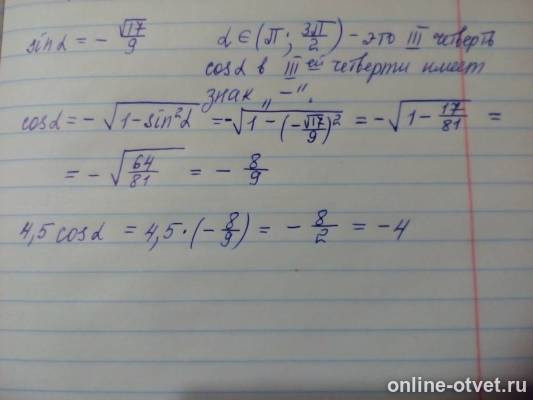 sinα = - √17/9 α ∈ (π; 3π/2) - это III четверть
cosα в III ей четверти имеет
знак „-".
cosα = - √(1-sin²α) = -√(1-(-√17/9)²) = -√(1-17/81) =
= - √(64/81) = - 8/9
4,5 cosα = 4,5·(-8/9) = - 8/2 = -4
online-otvet.ru